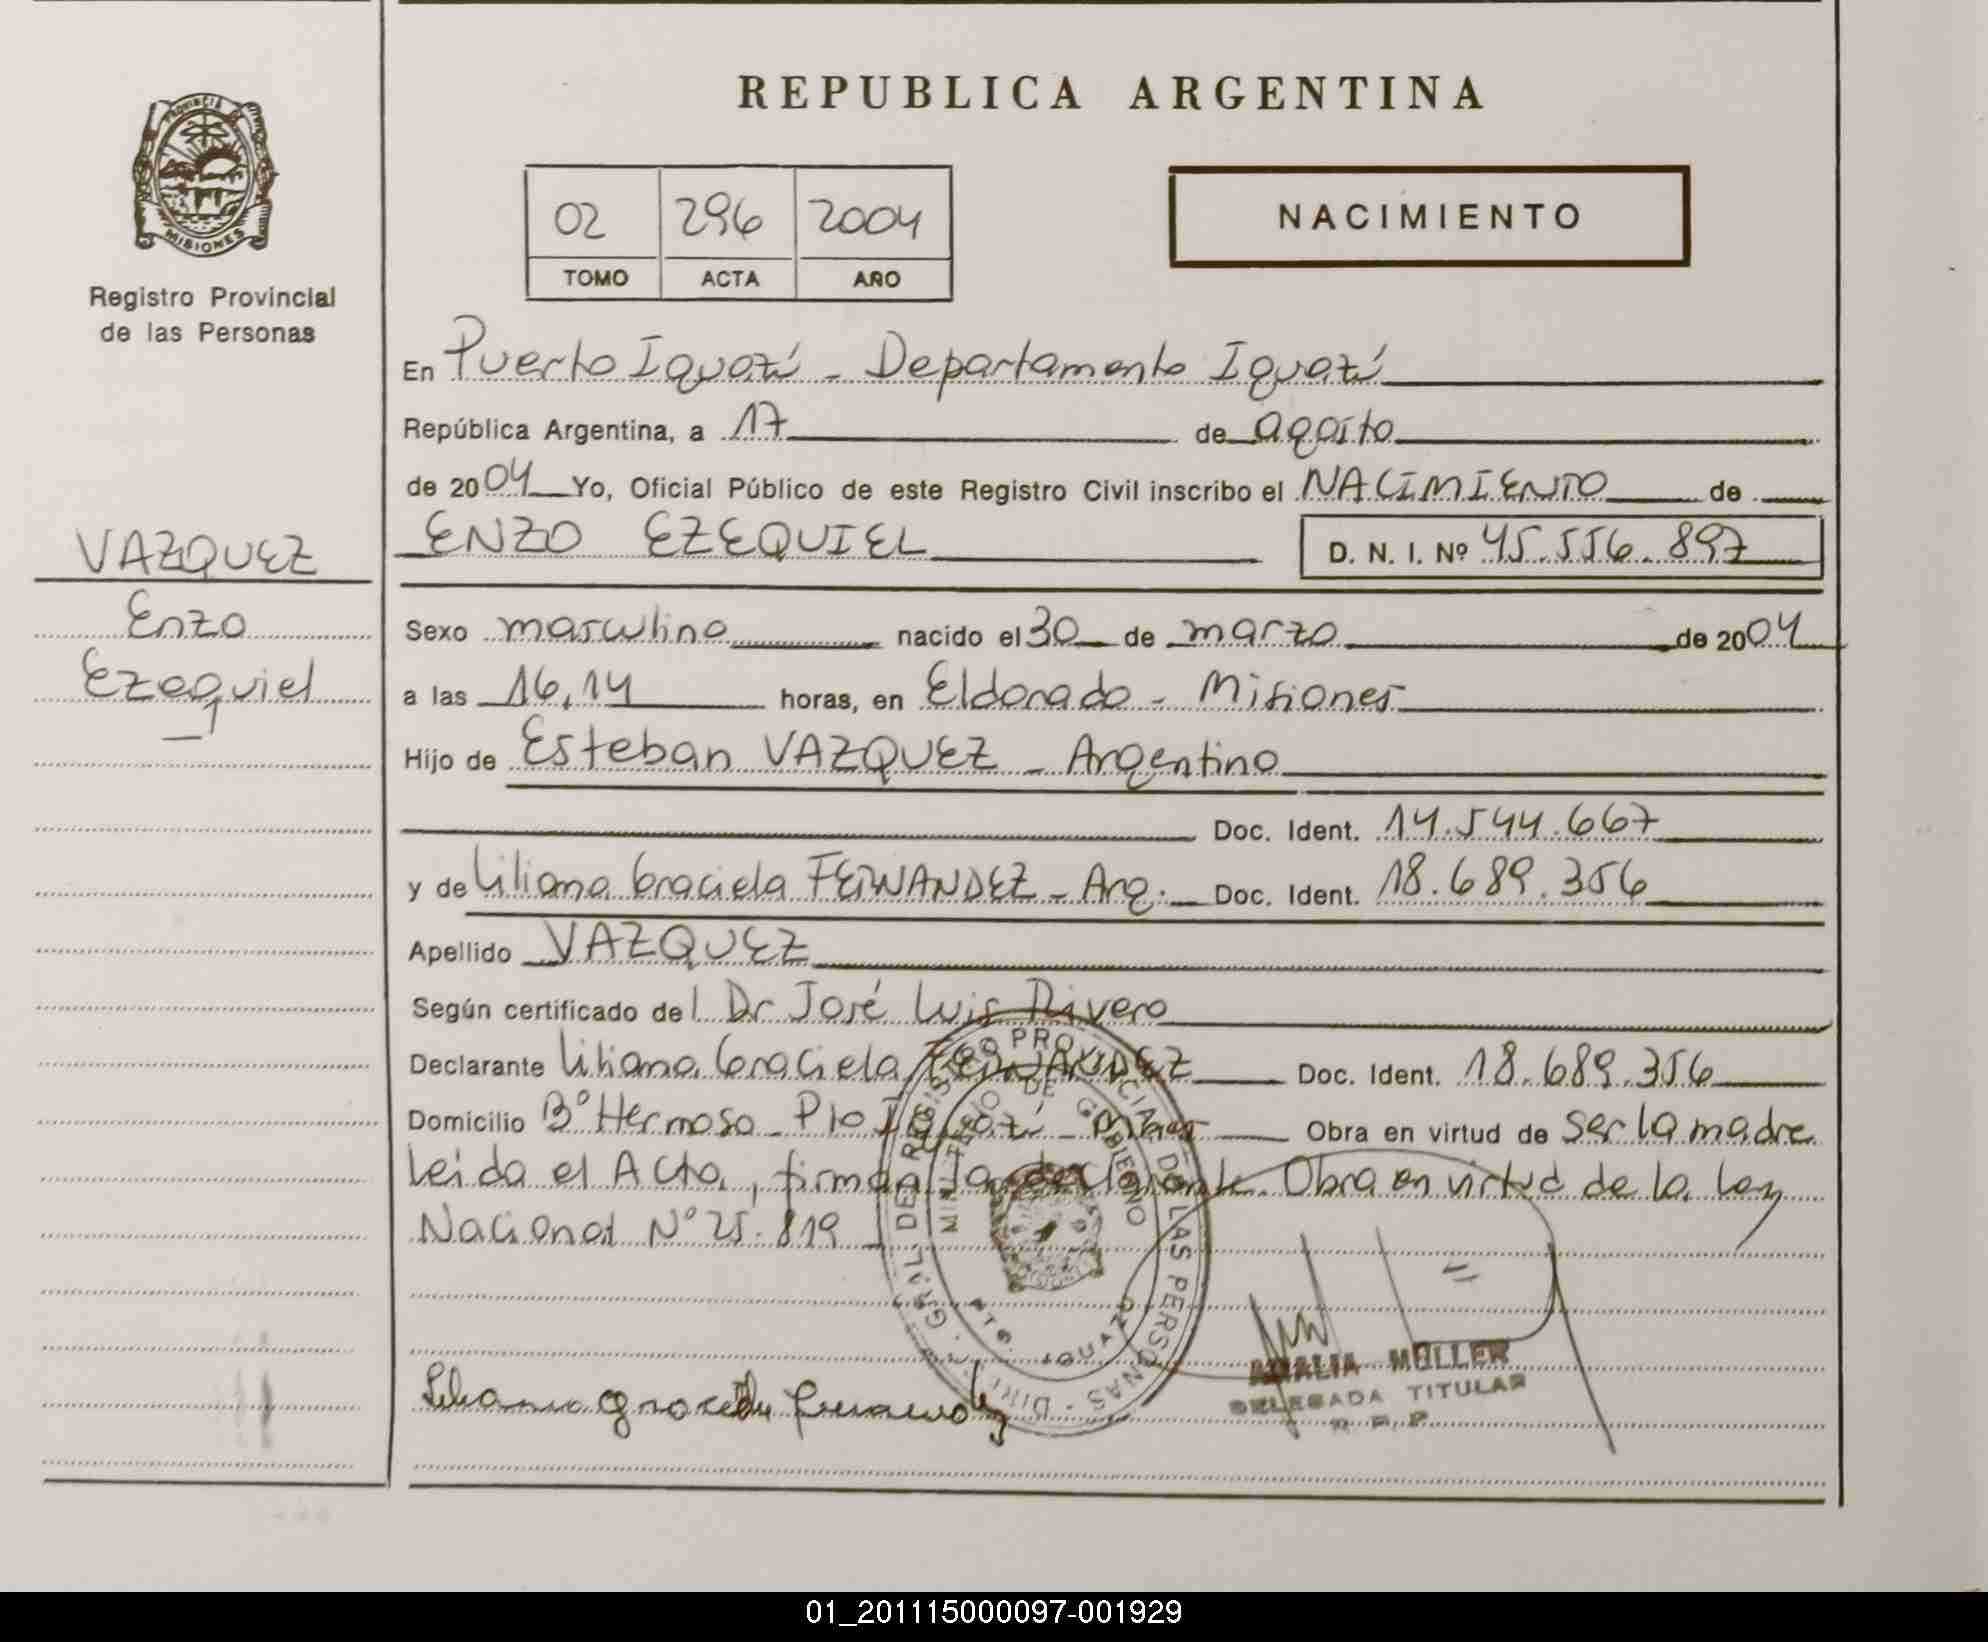 REPUBLICA ARGENTINA
PROVINCIA
MISIONES
Registro Provincial
de las Personas
02 296 2004
TOMO ACTA AÑO
NACIMIENTO
En Puerto Iguazú - Departamento Iguazú
República Argentina, a 17 de agosto
de 2004 Yo, Oficial Público de este Registro Civil inscribo el NACIMIENTO de
VAZQUEZ
ENZO EZEQUIEL D. N. I. Nº 45.556.897
Enzo
Ezequiel
Sexo masculino nacido el 30 de marzo de 2004
a las 16,14 horas, en Eldorado - Misiones
Hijo de Esteban VAZQUEZ - Argentino
Doc. Ident. 14.544.667
y de Liliana Graciela FERNANDEZ - Arg. Doc. Ident. 18.689.356
Apellido VAZQUEZ
Según certificado del Dr José Luis Rivero
Declarante Liliana Graciela FERNANDEZ Doc. Ident. 18.689.356
Domicilio Bº Hermoso - Pto Iguazú - Mnes Obra en virtud de ser la madre
Leida el Acta, firma la declarante. Obra en virtud de la Ley
Nacional Nº 25.819
DEL REGISTRO PROVINCIAL DE LAS PERSONAS
DE GOBIERNO
PTO. IGUAZU
Liliana Graciela Fernandez
AMALIA MULLER
DELEGADA TITULAR
R. P. P.
01_201115000097-001929